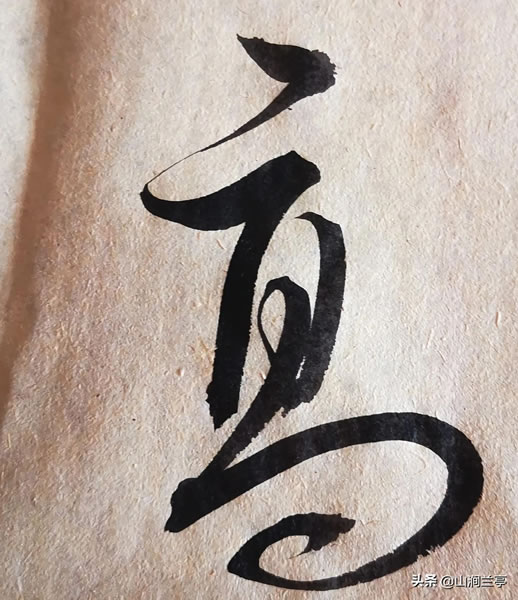 高
头条 @山涧兰亭